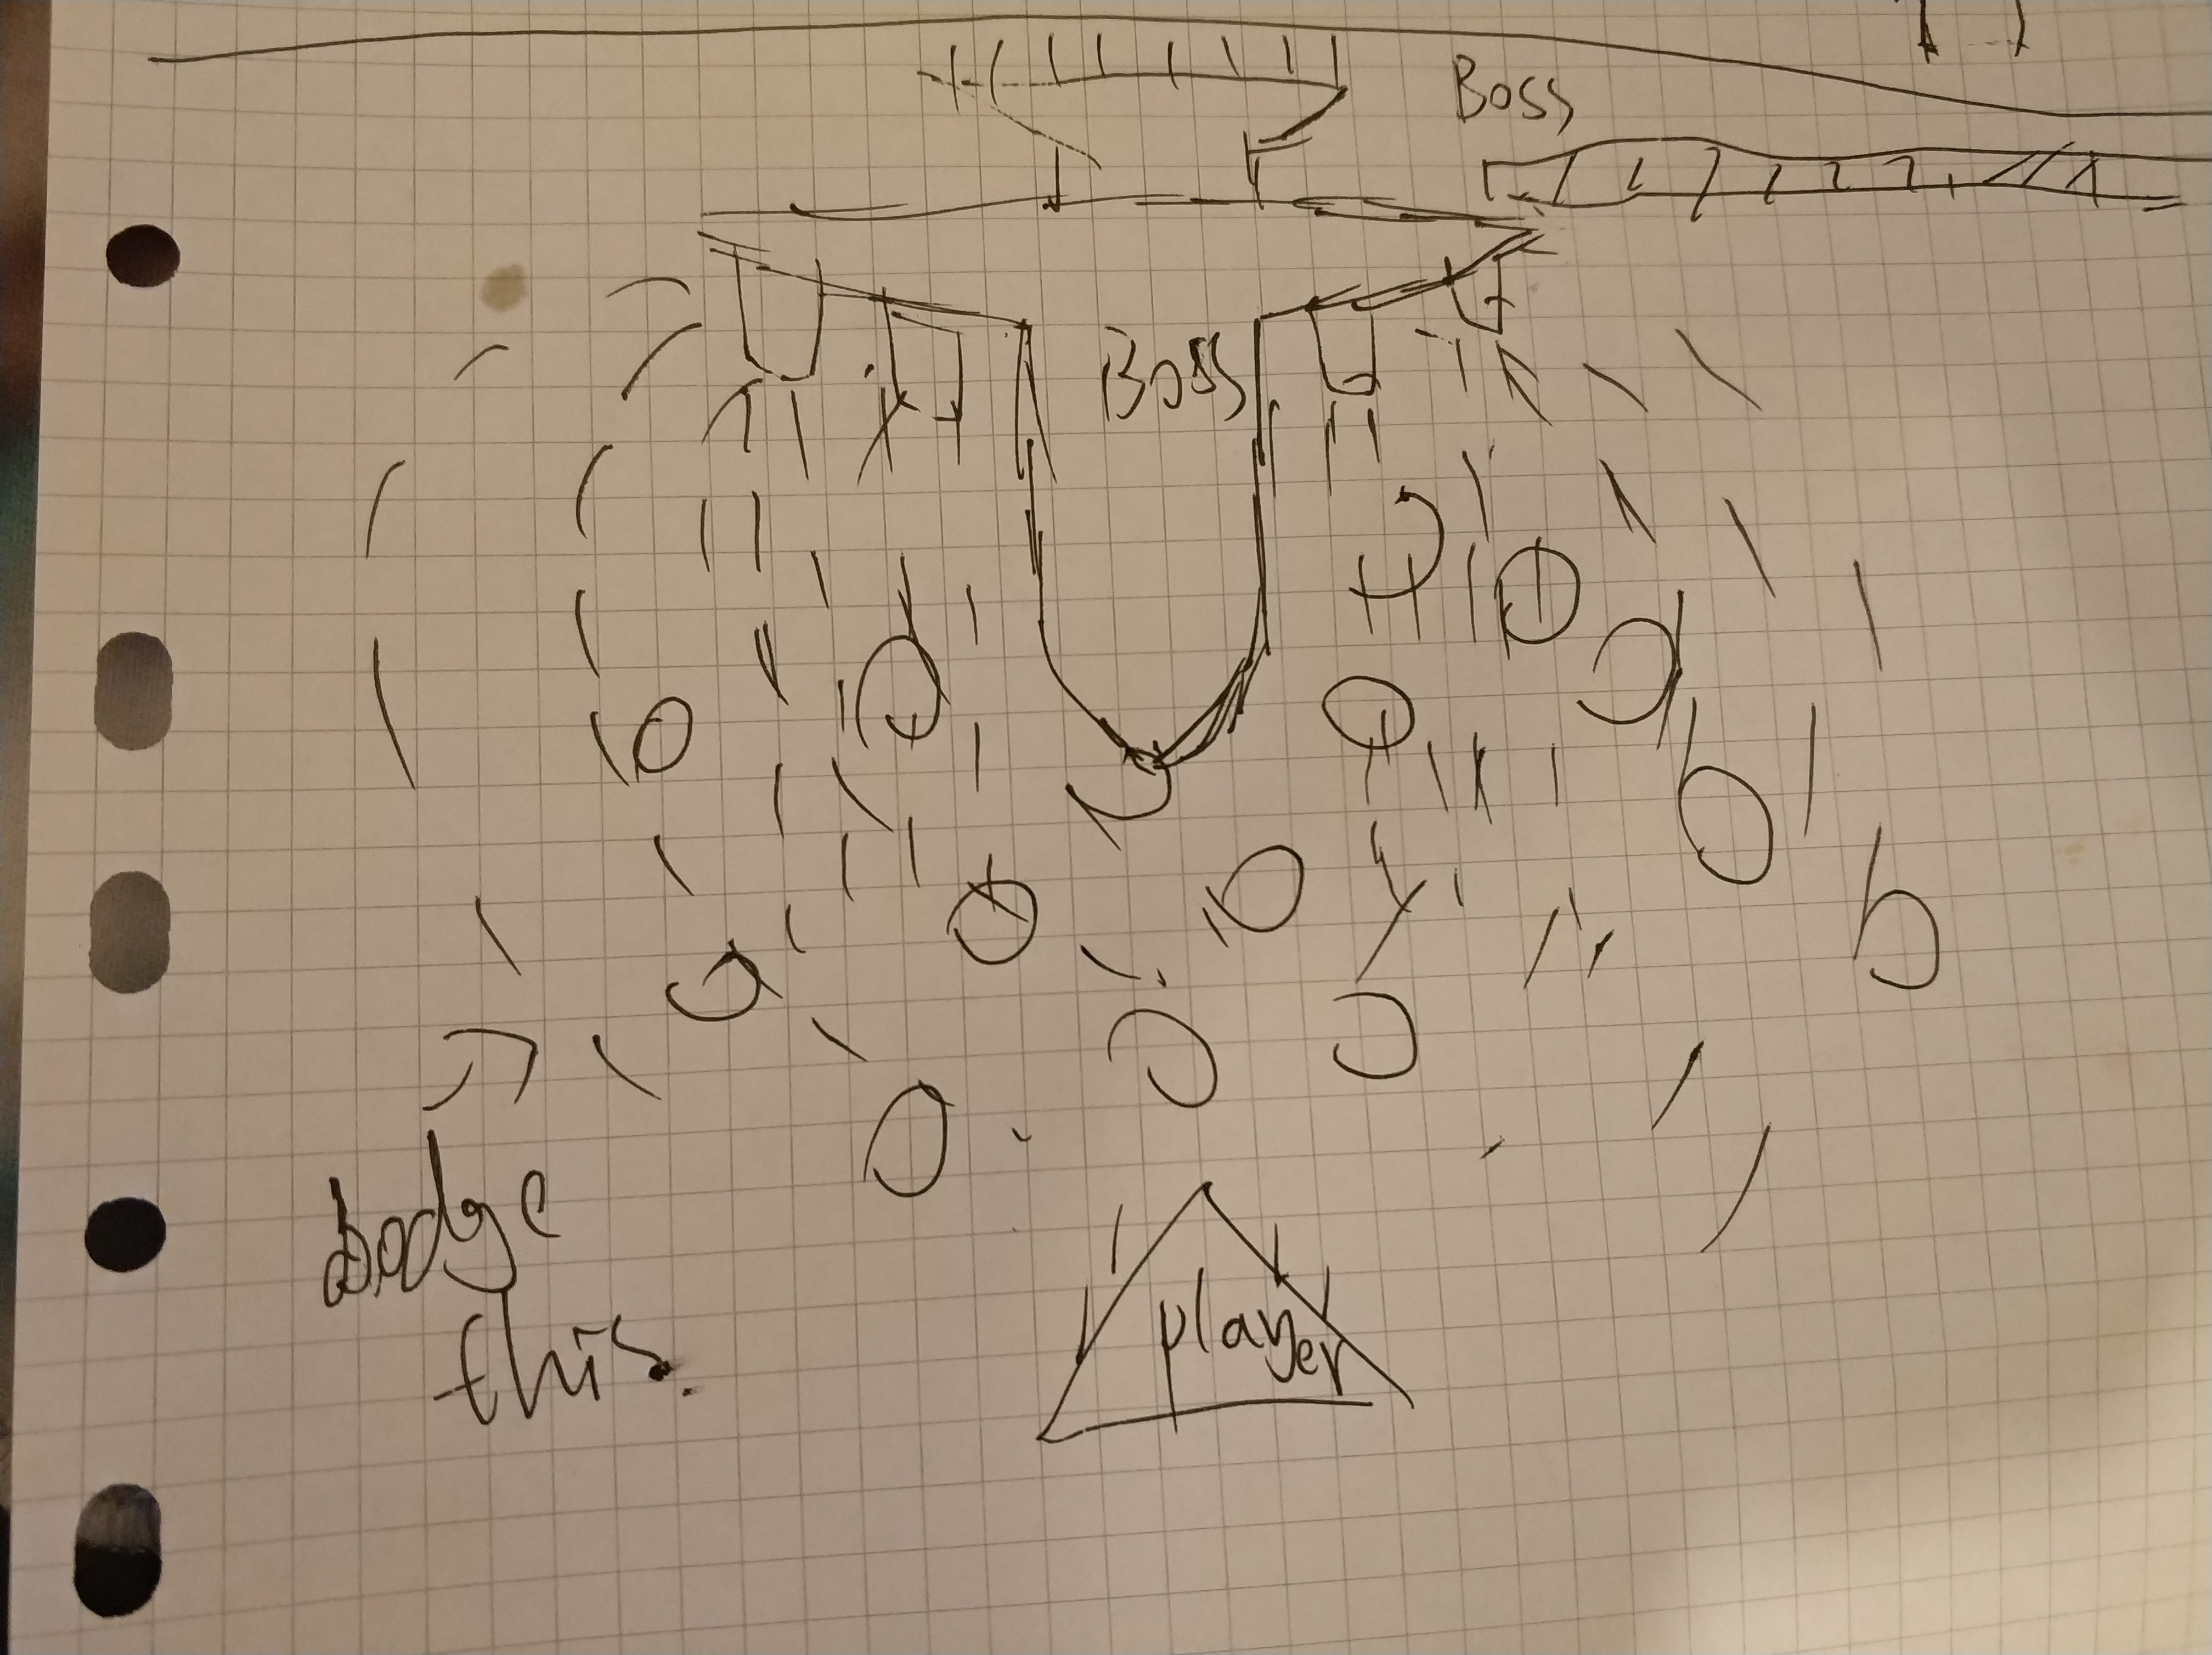 Boss
Boss
dodge
this.
player